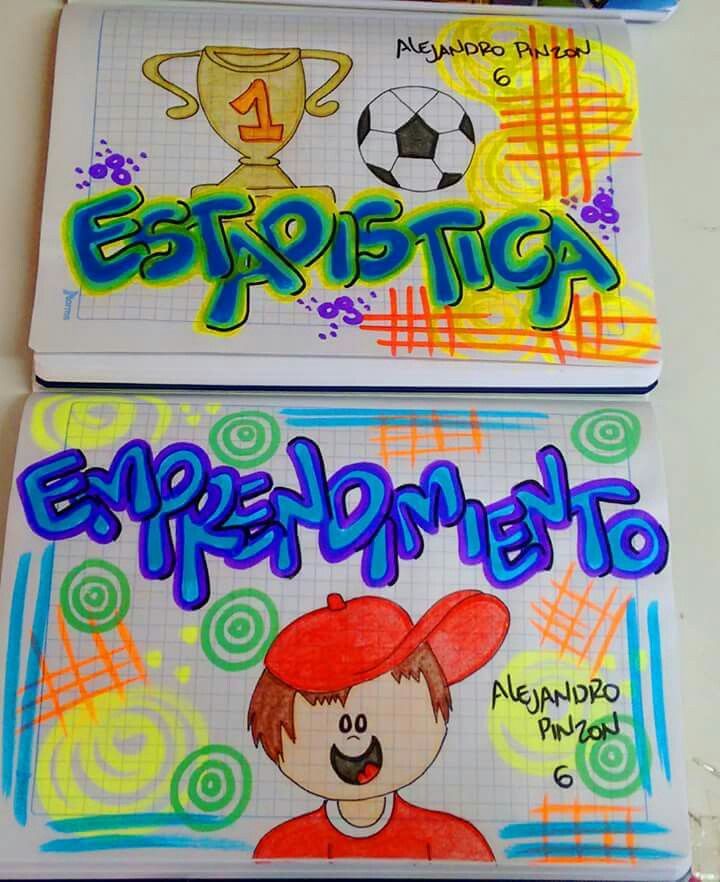 ALEJANDRO PINZON
6
1
ESTADISTICA
Norma
EMPRENDIMIENTO
ALEJANDRO
PINZON
6